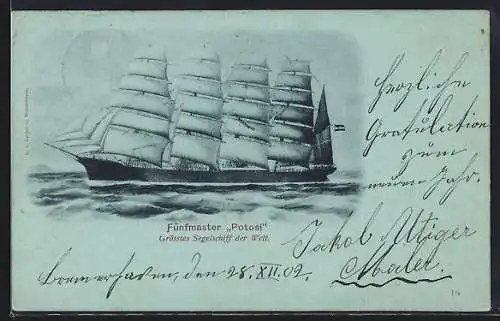 Fünfmaster „Potosi“
Grösstes Segelschiff der Welt.
Herzliche
Gratulation
zum
neuen Jahr.
Jakob Utiger
Maler.
Bremerhafen, den 28. XII. 02.